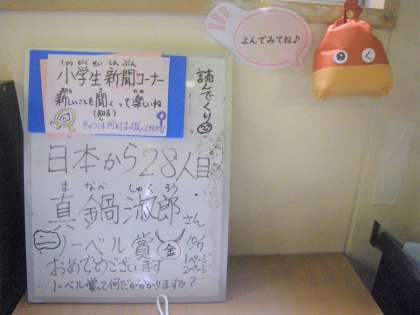 よんでみてね♪
しょうがくせいしんぶん
小学生新聞コーナー
新しいことを聞くって楽しいね
(知る)
読んでくり
日本から28人目
まなべしゅくろう
真鍋淑郎さん
ノーベル賞
金
10/6
1ページ
2ページ
おめでとうございます
…ノーベル賞って何だかわかりますか?